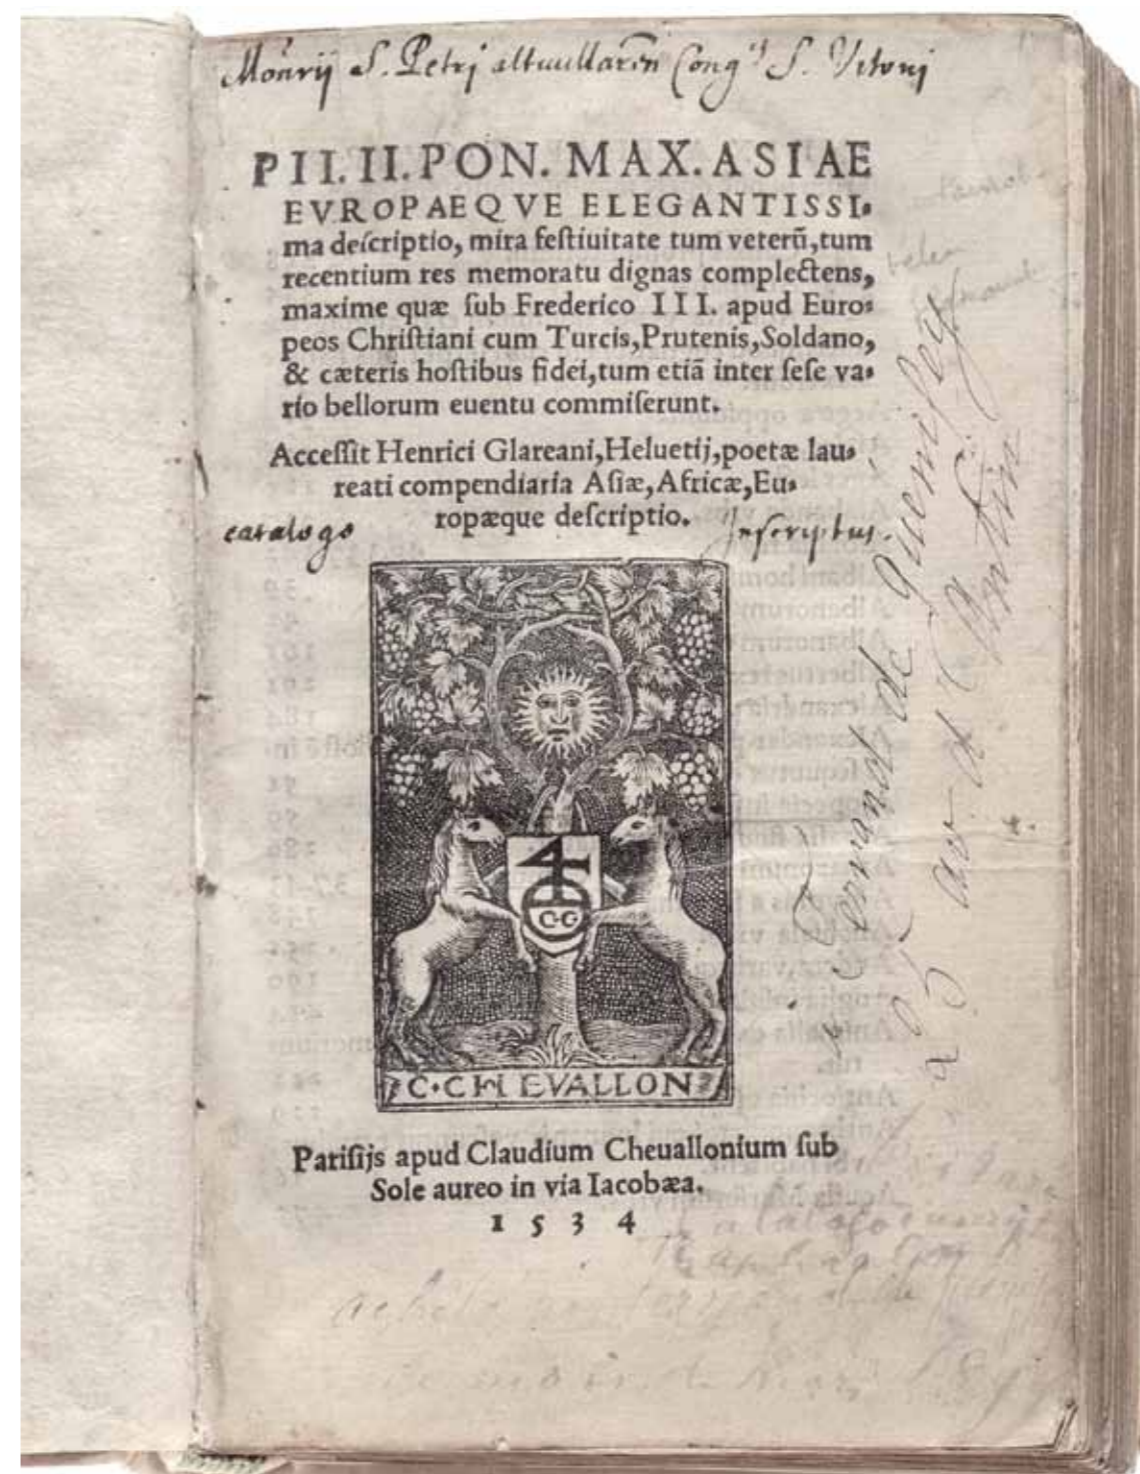 Mon̄rij S. Petri altiuillaren̄ Cong.is S. Vitoni
PII. II. PON. MAX. ASIAE
EVROPAEQVE ELEGANTISSI-
ma deſcriptio, mira feſtiuitate tum veterū, tum
recentium res memoratu dignas complectens,
maxime quæ ſub Frederico III. apud Euro-
peos Chriſtiani cum Turcis, Prutenis, Soldano,
& cæteris hoſtibus fidei, tum etiā inter ſeſe va-
rio bellorum euentu commiſerunt.
Acceſſit Henrici Glareani, Heluetij, poetæ lau-
reati compendiaria Aſiæ, Africæ, Eu-
ropæque deſcriptio.
catalogo Inscriptus.
4
C·G
C·CHEVALLON
Pariſijs apud Claudium Cheuallonium ſub
Sole aureo in via Iacobæa.
1534